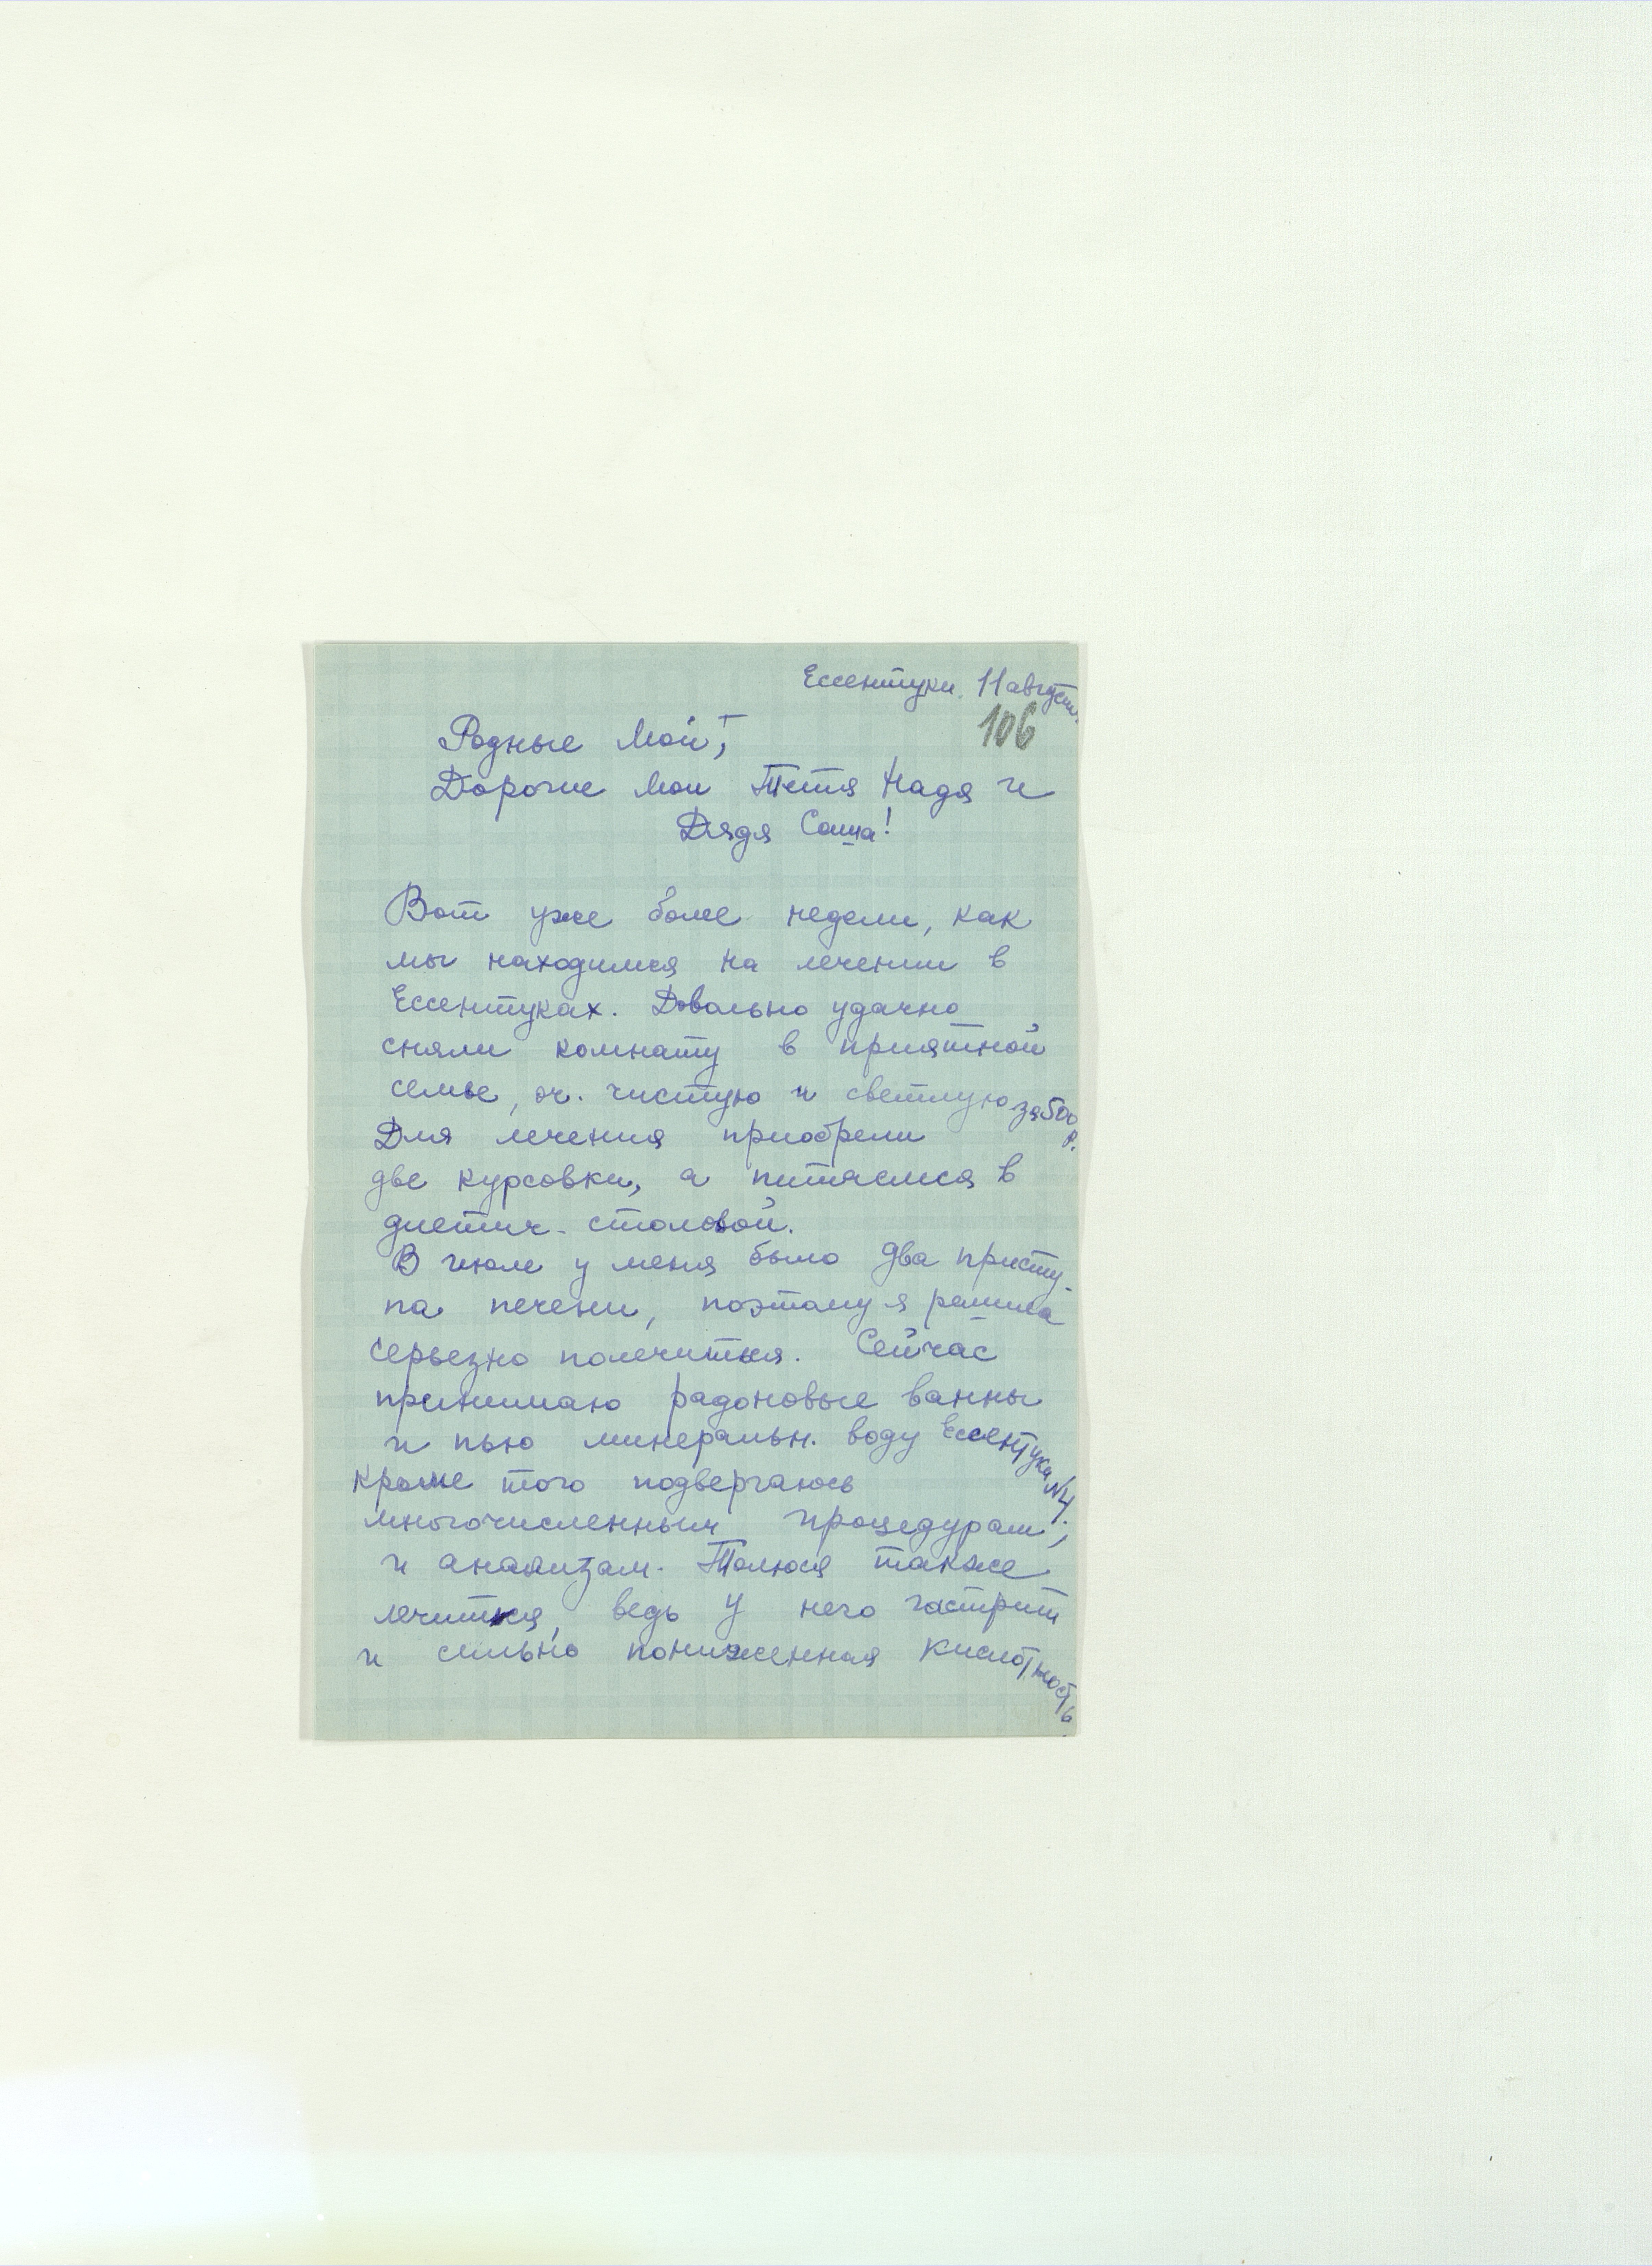 Ессентуки. 11 август.
106
Родные мои,
Дорогие мои Тетя Надя и
Дядя Саша!
Вот уже более недели, как
мы находимся на лечении в
Ессентуках. Довольно удачно
сняли комнату в приятной
семье, оч. чистую и светлую за 500 р.
Для лечения приобрели
две курсовки, а питаемся в
диетич. столовой.
В июле у меня было два присту-
па печени, поэтому я решила
серьезно полечиться. Сейчас
принимаю радоновые ванны
и пью минеральн. воду Ессентуки №4.
Кроме того подвергаюсь
многочисленным процедурам,
и анализам. Толюся также
лечится, ведь у него гастрит
и сильно пониженная кислотность